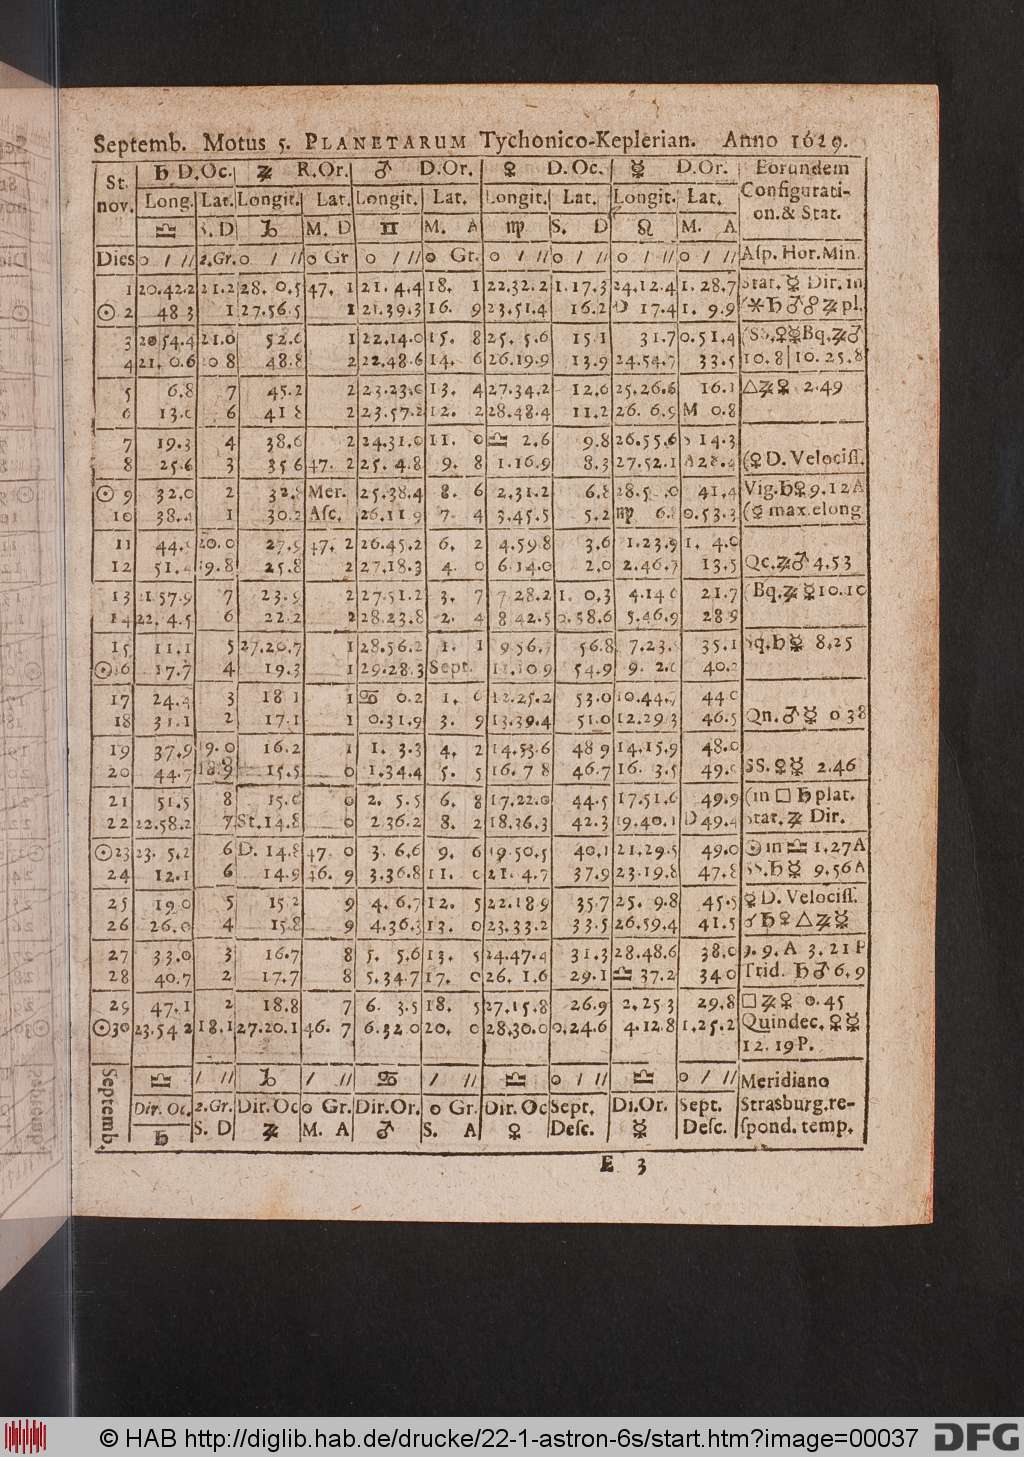 Septemb. Motus 5. PLANETARUM Tychonico-Keplerian. Anno 1629.
St. nov. ♄ D.Oc. ♃ R.Or. ♂ D.Or. ♀ D.Oc. ☿ D.Or. Eorundem
Long. Lat. Longit. Lat. Longit. Lat. Longit. Lat. Longit. Lat. Configurati-
♎ S. D ♑ M. D ♊ M. A ♍ S. D ♌ M. A on. & Stat.
Dies o / // 2.Gr. o / // o Gr o / // o Gr. o / // o / // o / // o / // Asp. Hor. Min.
1 20.42.2 21.2 28. 0.5 47. 1 21. 4.4 18. 1 22.32.2 1.17.3 24.12.4 1. 28.7 Stat. ☿ Dir. in
☉ 2 48 3 1 27.56.5 1 21.39.3 16. 9 23.51.4 16.2 D 17.4 1. 9.9 (⚹ ♄ ♂ ☍ ♃ pl.
3 20 54.4 21.0 52.6 1 22.14.0 15. 8 25. 5.6 15.1 31.7 0.51.4 (SS. ♀ ☿ Bq. ♃ ♂
4 21. 0.6 20 8 48.8 2 22.48.6 14. 6 26.19.9 13.9 24.54.7 33.5 10. 8 | 10. 25.8
5 6.8 7 45.2 2 23.23.0 13. 4 27.34.2 12.6 25.26.8 16.1 △ ♃ ♀ 2.49
6 13.0 6 41 8 2 23.57.2 12. 2 28.48.4 11.2 26. 6.9 M 0.8
7 19.3 4 38.6 2 24.31.0 11. 0 ♎ 2.6 9.8 26.55.6 S 14.3
8 25.6 3 35 6 47. 2 25. 4.8 9. 8 1.16.9 8.3 27.52.1 A 28.4 (♀ D. Velociss.
☉ 9 32.0 2 32.8 Mer. 25.38.4 8. 6 2.31.2 6.8 28.5 .0 41.4 Vig. ♄ ♀ 9.12 A
10 38. 1 30.2 Asc. 26.11 9 7. 4 3.45.5 5.2 ♍ 6.8 0.53.3 (☿ max. elong
11 44. 20.0 27.9 47. 2 26.45.2 6. 2 4.59 8 3.6 1.23.9 1. 4.0
12 51. 19.8 25.8 2 27.18.3 4. 0 6.14.0 2.0 2.46.7 13.5 Qc. ♃ ♂ 4.53
13 21.57.9 7 23.9 2 27.51.2 3. 7 7 28.2 1. 0.3 4.14 0 21.7 (Bq. ♃ ☿ 10.10
14 22. 4.5 6 22.2 2 28.23.8 2. 4 8 42.5 0.58.6 5.46.9 28 9
15 11.1 5 27.20.7 1 28.56.2 1. 1 9 56.7 56.8 7.23. 35.1 Sq. ♄ ☿ 8.25
☉ 16 17.7 4 19.3 1 29.28.3 Sept. 11.10 9 54.9 9. 2.0 40.2
17 24.4 3 18 1 1 ♋ 0.2 1. 6 12.25.2 53.0 10.44.7 44 0
18 31.1 2 17.1 1 0.31.9 3. 9 13.39.4 51.0 12.29.3 46.5 Qn. ♂ ☿ 0 38
19 37.9 19.0 16.2 1 1. 3.3 4. 2 14.53.6 48 9 14.15.9 48.0
20 44.7 18.9 15.5 0 1.34.4 5. 5 16. 7 8 46.7 16. 3.5 49.0 SS. ♀ ☿ 2.46
21 51.5 8 15.0 0 2. 5.5 6. 8 17.22.0 44.5 17.51.6 49.9 (in □ ♄ plat.
22 22.58.2 7 St. 14.8 0 2 36.2 8. 2 18.36.3 42.3 19.40.1 D 49.4 Stat. ♃ Dir.
☉ 23 23. 5.2 6 D. 14.8 47. 0 3. 6.6 9. 6 19.50.5 40.1 21.29.5 49.0 ☉ in ♎ 1.27 A
24 12.1 6 14.9 46. 9 3.36.8 11. 0 21. 4.7 37.9 23.19.8 47.8 SS. ♄ ☿ 9.56 A
25 19 0 5 15.2 9 4. 6.7 12. 5 22.18 9 35.7 25. 9.8 45.5 ☿ D. Velociss.
26 26.0 4 15.8 9 4.36.3 13. 0 23.33.2 33.5 26.59.4 41.5 ☌ ♄ ♀ △ ♃ ☿
27 33.0 3 16.7 8 5. 5.6 13. 5 24.47.4 31.3 28.48.6 38.0 9. 9. A 3. 21 P
28 40.7 2 17.7 8 5.34.7 17. 0 26. 1.6 29.1 ♎ 37.2 34 0 Trid. ♄ ♂ 6.9
29 47.1 2 18.8 7 6. 3.5 18. 5 27.15.8 26.9 2.25 3 29.8 □ ♃ ♀ 0.45
☉ 30 23.54 2 18.1 27.20.1 46. 7 6.32.0 20. 0 28.30.0 0.24.6 4.12.8 1.25.2 Quindec. ♀ ☿
12. 19 P.
Septemb. ♎ / // ♑ / // ♋ / // ♎ o / // ♎ o / // Meridiano
Dir. Oc. 2.Gr. Dir. Oc o Gr. Dir. Or. o Gr. Dir. Oc Sept. Di. Or. Sept. Strasburg. re-
♄ S. D ♃ M. A ♂ S. A ♀ Desc. ☿ Desc. spond. temp.
E 3
© HAB http://diglib.hab.de/drucke/22-1-astron-6s/start.htm?image=00037 DFG